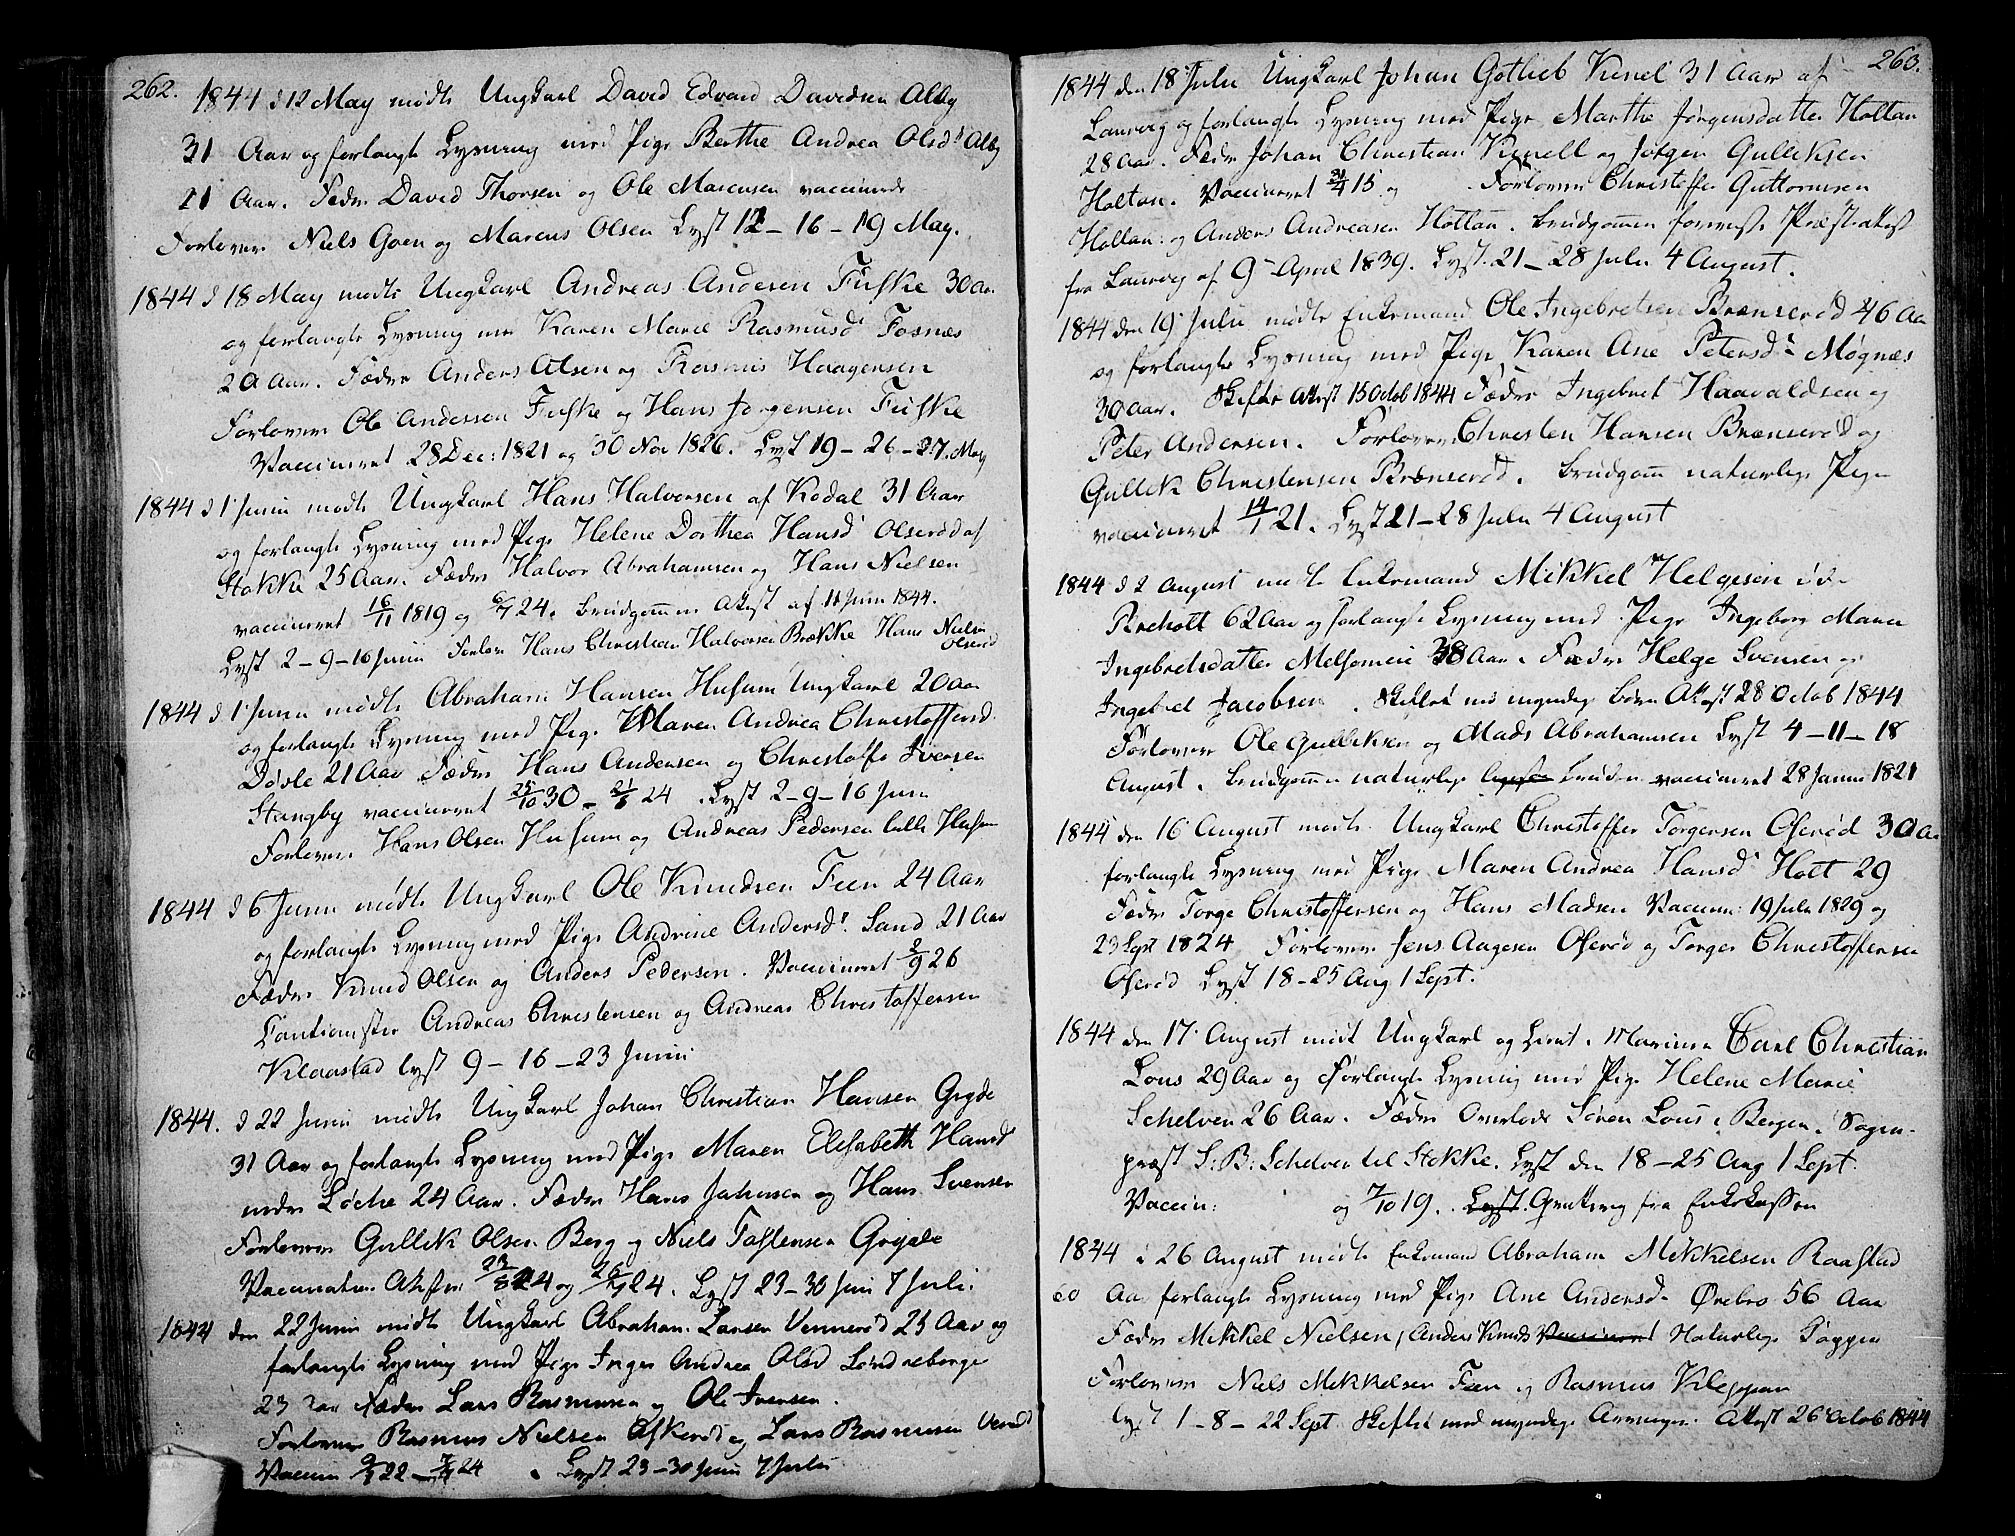 262.
1844 d 12 May mödte Ungkarl David Edvard Davidsen Alby
31 Aar og forlangte Lysning med Pige Berthe Andrea Olsd. Alby
21 Aar. Fædre David Thorsen og Ole Marcusen vaccinerede
Forlovere Niels Goen og Marcus Olsen Lyst 12 - 16 - 19 May.
1844 d 18 May mödte Ungkarl Andreas Andersen Fuske 30 Aar
og forlangte Lysning med Karen Marie Rasmusd Fosnæs
20 Aar. Fædre Anders Olsen og Rasmus Haagensen
Forlovere Ole Anderssen Fuske og Hans Jørgensen Fuske
Vaccineret 28 Dec: 1821 og 30 Nov 1826. Lyst 19 - 26 - 27. May
1844 d 1 Juni mödte Ungkarl Hans Halvorsen af Kodal 31 Aar
og forlangte Lysning med Pige Helene Dorthea Hansd Olserød af
Stokke 25 Aar. Fædre Halvor Abrahamsen og Hans Nielsen
vaccineret 16/11 1819 og 6/7 24. Brudgommens Attest af 11 Juni 1844.
Lyst 2 - 9 - 16 Juni Forlov Hans Christian Halvorsen Brække Hans Nielsen
Olserød
1844 d 1 Juni mödte Abraham Hansen Husum Ungkarl 20 Aar
og forlangte Lysning med Pige Maren Andrea Christoffersd.
Døsle 21 Aar Fædre Hans Andersen og Christoffer Iversen
Stangby vaccineret 25/10 30 - 21/8 24. Lyst 2 - 9 - 16 Juni
Forlovere Hans Olsen Husum og Andreas Pedersen lille Husum
1844 d 6 Juni mödte Ungkarl Ole Knudsen Feen 24 Aar
og forlangte Lysning med Pige Andrine Andersd. Sand 21 Aar
Fædre Knud Olsen og Anders Pedersen. Vaccineret 2/9 26
Cautionister Andreas Christensen og Andreas Christoffersen
Klaastad lyst 9 - 16 - 23 Juni
1844. d 22 Juni mödte Ungkarl Johan Christian Hansen Gryde
31 Aar og forlangte Lysning med Pige Maren Elisabeth Hansd
nedre Løche 24 Aar. Fædre Hans Johnsen og Hans Svensen
Forlovere Gullik Olsen Berg og Niels Tostensen Gryde
Vaccinations Attester 22/8 24 og 26/7 24. Lyst 23 - 30 Juni 7 Juli.
1844 den 22 Juni mödte Ungkarl Abraham Larsen Vennerød 25 Aar og
forlangte Lysning med Pige Inger Andrea Olsd Søndreberge
23 Aar Fædre Lars Rasmusen og Ole Iversen.
Forlovere Rasmus Nielsen Askerød og Lars Rasmusen Vennerød
Vaccin 9/7 22 - 24. Lyst 23 - 30 Juni 7 Juli
263.
1844 den 18 Juli Ungkarl Johan Gotlieb Kinel 31 Aar af
Laurvig og forlangte Lysning med Pige Marthe Jørgensdatter Holtan
28 Aar. Fædre Johan Christian Kinell og Jørgen Gulliksen
Holtan. Vaccineret 15 og Forlovere Christoffer Guttormsen
Holtan og Anders Andreasen Holtan. Brudgommen foreviste Præsteattest
fra Laurvig af 9 April 1839. Lyst. 21 - 28 Juli 4 August.
1844 den 19 Juli mödte Enkemand Ole Ingebretsen Brænserød 46 Aar
og forlangte Lysning med Pige Karen Ane Petersd Møgnæs
30 Aar. Skifte Attest 15 Octob 1844 Fædre Ingebret Haavaldsen og
Peter Andersen. Forlovere Christen Hansen Brænserød og
Gullik Christensen Brænserød. Brudgom naturlige Pigen
vaccineret 14/1 21. Lyst 21 - 28 Juli 4 August
1844 d 2 August mödte Enkemand Mikkel Helgesen
Rneholt 62 Aar og forlangte Lysning med Pige Ingeborg Maria
Ingebretsdatter Melsomvie 38 Aar. Fædre Helge Svensen og
Ingebret Jacobsen. Skiftet med myndige Børn Attest 28 Octob 1844
Forlovere Ole Gulliksen og Mads Abrahamsen Lyst 4 - 11 - 18
August. Brudgommen naturlige Bruden vaccineret 28 Januar 1821
1844 den 16 August mödte Ungkarl Christoffer Torgersen Oserød 30 Aar
forlangte Lysning med Pige Maren Andrea Hansd Holt 29
Fædre Torge Christoffersen og Hans Madsen Vaccin: 19 Juli 1829 og
23 Sept 1824 Forlovere Jens Aagesen Oserød og Torger Christoffersen
Oserød Lyst 18 - 25 Aug 1 Sept.
1844 den 17 August mödt Ungkarl og Lieut. i Marinen Carl Christian
Lous 29 Aar og forlangte Lysning med Pige Helene Marie
Schelven 26 Aar. Fædre Overlods Sören Lous i Bergen, Sogne-
præst S: B: Schelven til Stokke. Lyst den 18 - 25 Aug 1 Sept.
Vaccin: og 7/10 19. Lyst. Qvittering fra Enkekassen
1844 d 26 August mödte Enkemand Abraham Mikkelsen Raastad
60 Aar forlangte Lysning med Pige Ane Andersd Örebro 56 Aar
Fædre Mikkel Nielsen, Anders Knuds Vaccineret Naturlige Kopper
Forlovere Niels Mikkelsen Feen og Rasmus Kleppan
lyst 1 - 8 - 22 Sept. Skiftet med myndige Arvinger. Attest 26 Octob 1844